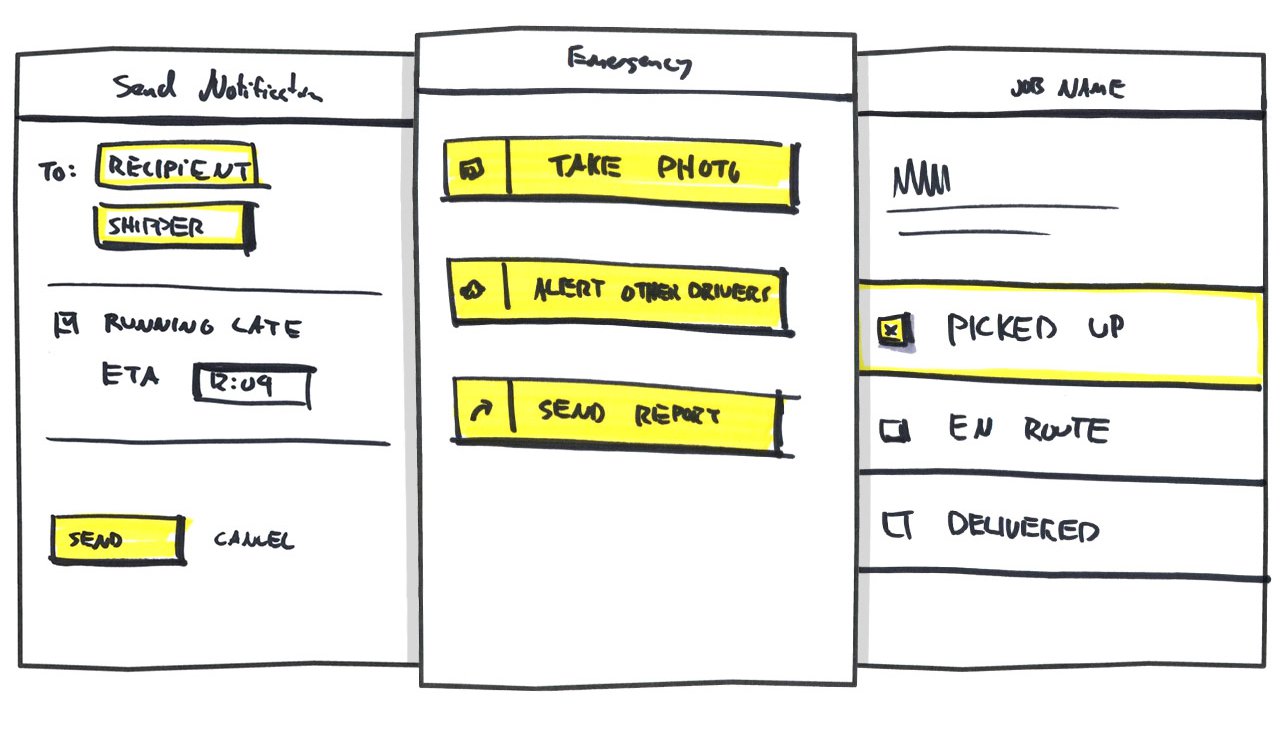 Send Notification
To: RECIPIENT
SHIPPER
RUNNING LATE
ETA 12:09
SEND CANCEL
Emergency
TAKE PHOTO
ALERT OTHER DRIVERS
SEND REPORT
JOB NAME
PICKED UP
EN ROUTE
DELIVERED